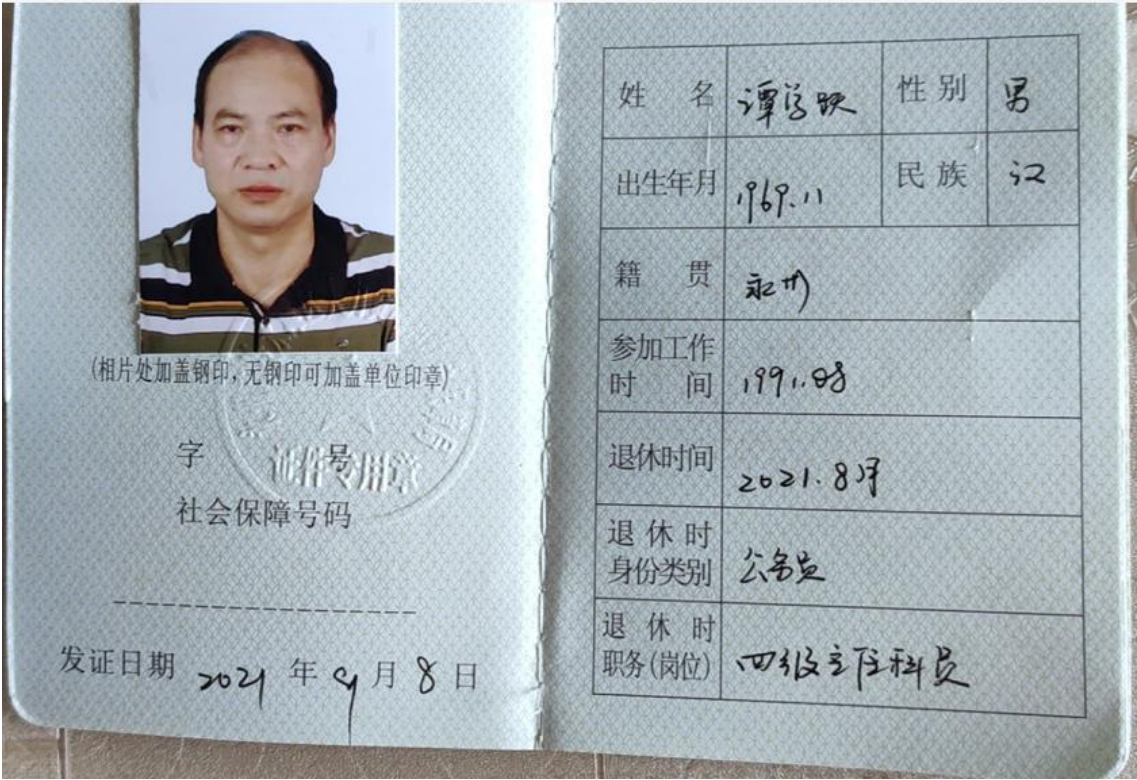 (相片处加盖钢印,无钢印可加盖单位印章)
字 号
证件专用章
社会保障号码
发证日期 2021 年 9 月 8 日
姓 名 谭学跃 性别 男
出生年月 1969.11 民族 汉
籍 贯 永州
参加工作
时 间 1991.08
退休时间 2021.8月
退休时
身份类别 公务员
退休时
职务(岗位) 四级主任科员